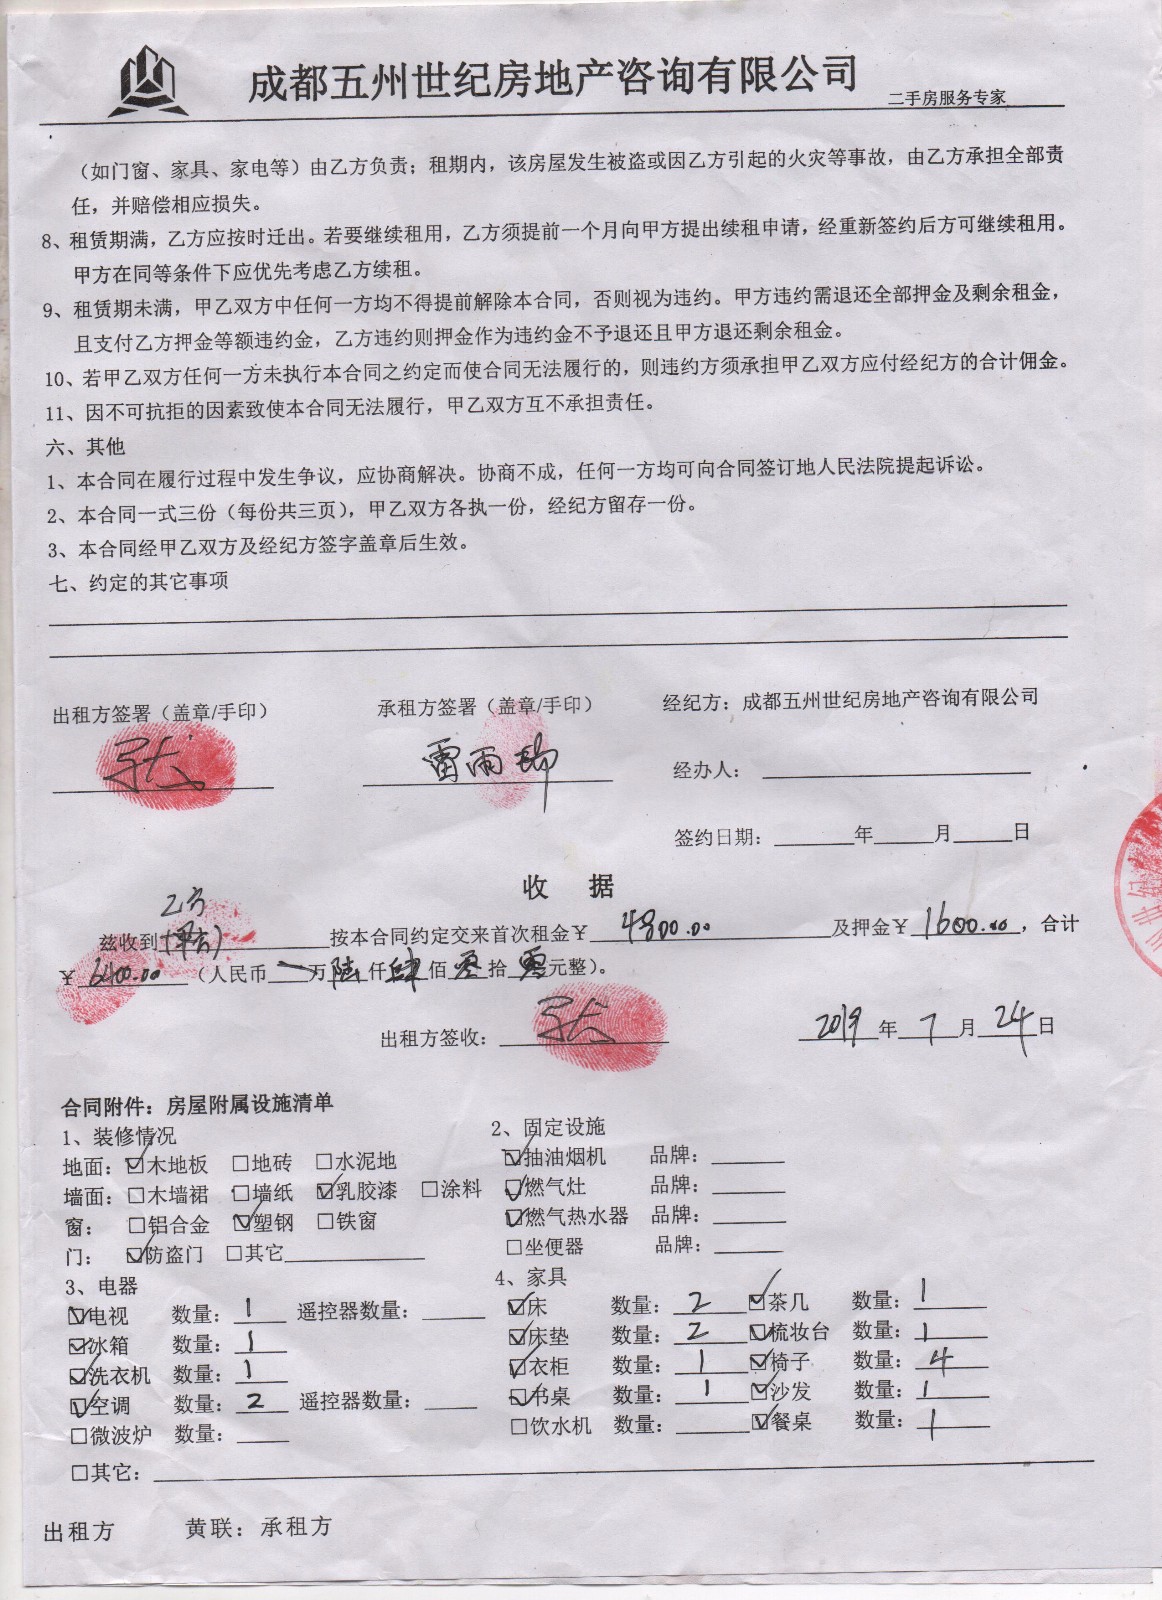 成都五州世纪房地产咨询有限公司 二手房服务专家
（如门窗、家具、家电等）由乙方负责；租期内，该房屋发生被盗或因乙方引起的火灾等事故，由乙方承担全部责
任，并赔偿相应损失。
8、租赁期满，乙方应按时迁出。若要继续租用，乙方须提前一个月向甲方提出续租申请，经重新签约后方可继续租用。
甲方在同等条件下应优先考虑乙方续租。
9、租赁期未满，甲乙双方中任何一方均不得提前解除本合同，否则视为违约。甲方违约需退还全部押金及剩余租金，
且支付乙方押金等额违约金，乙方违约则押金作为违约金不予退还且甲方退还剩余租金。
10、若甲乙双方任何一方未执行本合同之约定而使合同无法履行的，则违约方须承担甲乙双方应付经纪方的合计佣金。
11、因不可抗拒的因素致使本合同无法履行，甲乙双方互不承担责任。
六、其他
1、本合同在履行过程中发生争议，应协商解决。协商不成，任何一方均可向合同签订地人民法院提起诉讼。
2、本合同一式三份（每份共三页），甲乙双方各执一份，经纪方留存一份。
3、本合同经甲乙双方及经纪方签字盖章后生效。
七、约定的其它事项
出租方签署（盖章/手印） 承租方签署（盖章/手印） 经纪方：成都五州世纪房地产咨询有限公司
雷雨 经办人：
签约日期：____年____月____日
收 据
乙方
兹收到 按本合同约定交来首次租金￥4800.00 及押金￥1600.00，合计
￥6400.00（人民币 一 万 陆 仟 肆 佰 零 拾 零 元整）。
出租方签收： 2019 年 7 月 24 日
合同附件：房屋附属设施清单
1、装修情况 2、固定设施
地面：☑木地板 □地砖 □水泥地 ☑抽油烟机 品牌：
墙面：□木墙裙 □墙纸 ☑乳胶漆 □涂料 ☑燃气灶 品牌：
窗： □铝合金 ☑塑钢 □铁窗 ☑燃气热水器 品牌：
门： ☑防盗门 □其它 □坐便器 品牌：
3、电器 4、家具
☑电视 数量：1 遥控器数量： ☑床 数量：2 ☑茶几 数量：1
☑冰箱 数量：1 ☑床垫 数量：2 ☑梳妆台 数量：1
☑洗衣机 数量：1 ☑衣柜 数量：1 ☑椅子 数量：4
☑空调 数量：2 遥控器数量： ☑书桌 数量：1 ☑沙发 数量：1
□微波炉 数量： □饮水机 数量： ☑餐桌 数量：1
□其它：
出租方 黄联：承租方